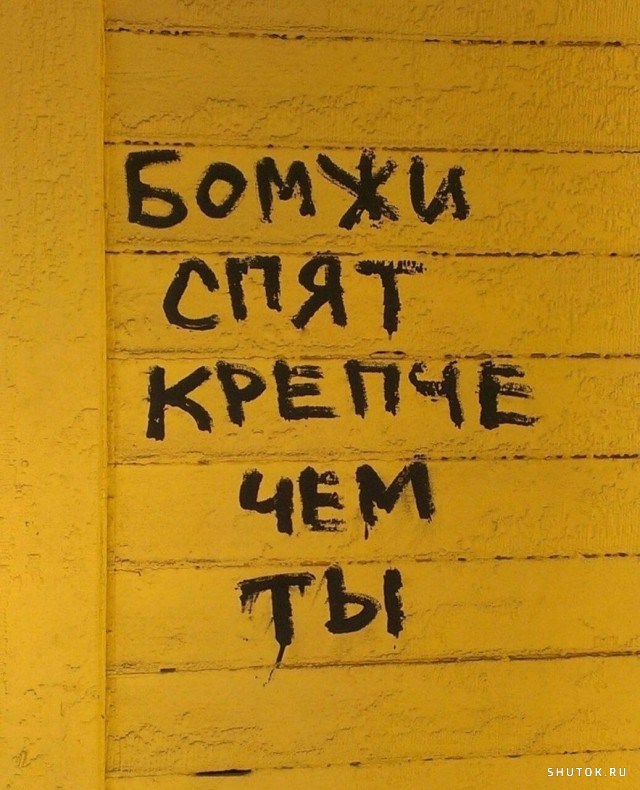 БОМЖИ
СПЯТ
КРЕПЧЕ
ЧЕМ
ТЫ
SHUTOK.RU